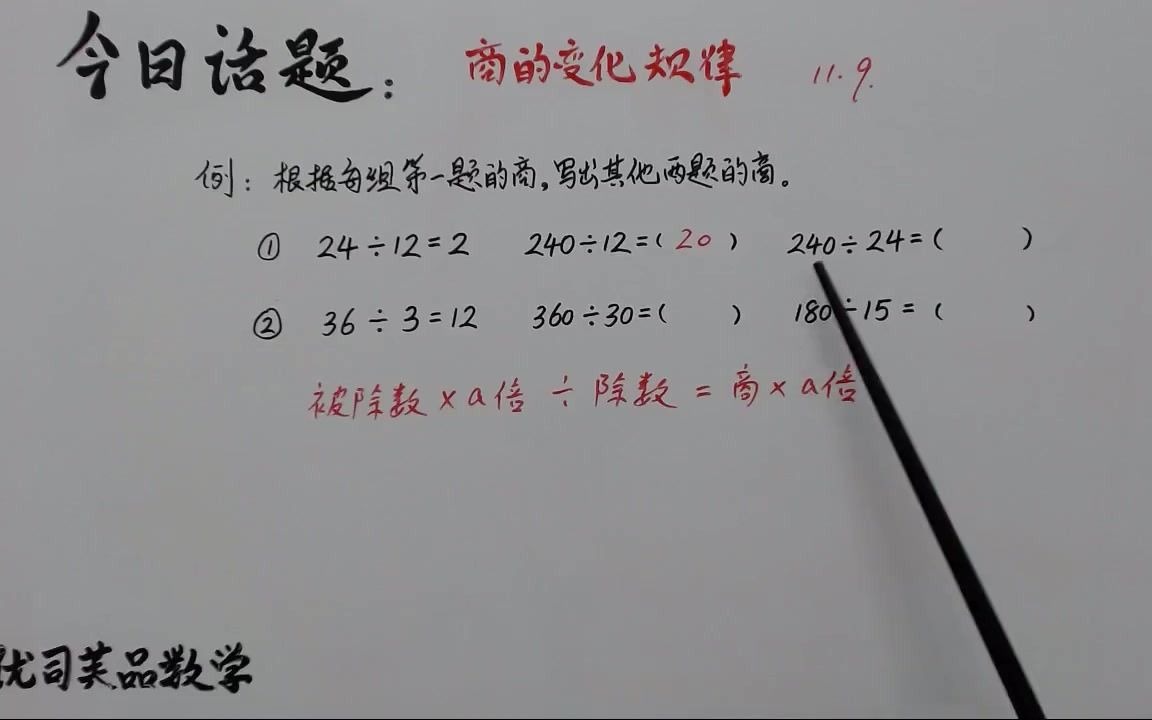 今日话题： 商的变化规律 11.9.
例：根据每组第一题的商，写出其他两题的商。
① 24÷12=2 240÷12=( 20 ) 240÷24=( )
② 36÷3=12 360÷30=( ) 180÷15=( )
被除数×a倍 ÷ 除数 = 商×a倍
优司芙品数学